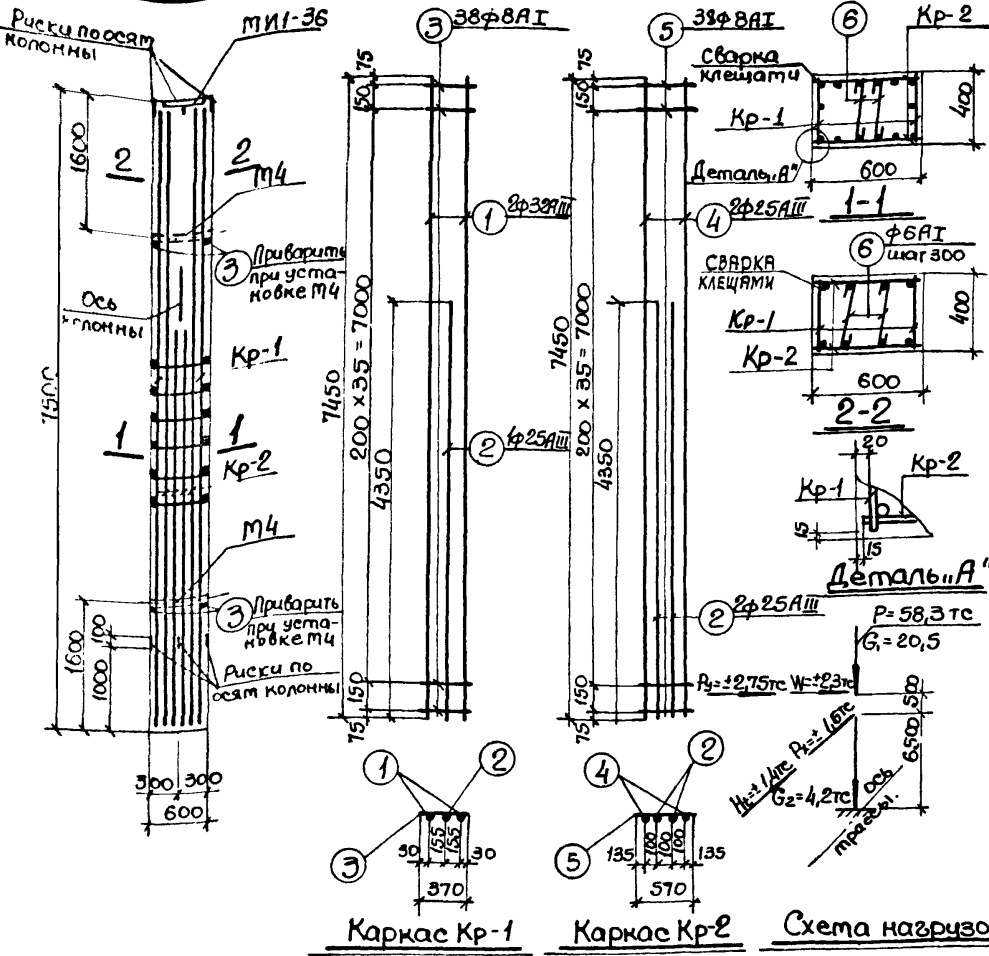 Риски по осям
колонны
МИ1-36
1600
2 2
М4
3 Приварить
при уста-
новке М4
Ось
колонны
Кр-1
7500
1 1
Кр-2
М4
3 Приварить
при уста-
новке М4
1600
100
1000
Риски по
осям колонны
300 300
600
3 38ф8АI
75
150
1 2ф32АIII
7450
200 x 35 = 7000
4350
2 1ф25АIII
150
75
1 2
3
30 155 155 30
370
Каркас Кр-1
5 38ф8АI
75
150
4 2ф25АIII
7450
200 x 35 = 7000
4350
2 2ф25АIII
150
75
4 2
5
135 100 100 100 135
570
Каркас Кр-2
6 Кр-2
Сварка
клещами
Кр-1
400
Деталь „А"
600
1-1
6 ф6АI
шаг 300
СВАРКА
КЛЕЩАМИ
Кр-1
Кр-2
400
600
2-2
20
Кр-1
Кр-2
15
15
Деталь „А"
Р=58,3 тс
G₁=20,5
Рy=±2,75тс W=±2,3тс
500
Ht=±1,4тс Рx=±1,6тс
G₂=4,2тс
6500
ось
трассы.
Схема нагрузо